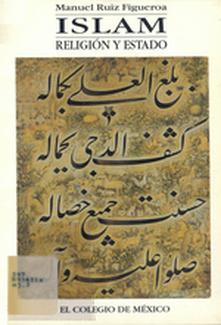 Manuel Ruiz Figueroa
ISLAM
RELIGIÓN Y ESTADO
بلغ العلى بكماله
كشف الدجى بجماله
حسنت جميع خصاله
صلوا عليه وآله
EL COLEGIO DE MÉXICO